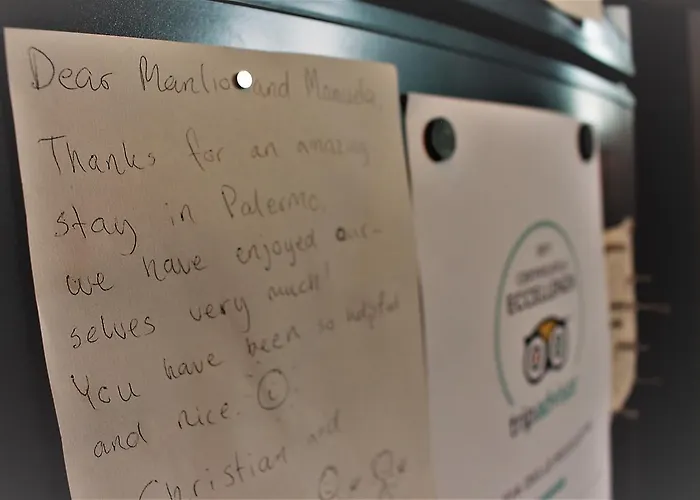 Dear Manlio and Manuela,
Thanks for an amazing
stay in Palermo,
we have enjoyed our-
selves very much!
You have been so helpful
and nice.
Christian and
ECCELLENZA
tripadvisor